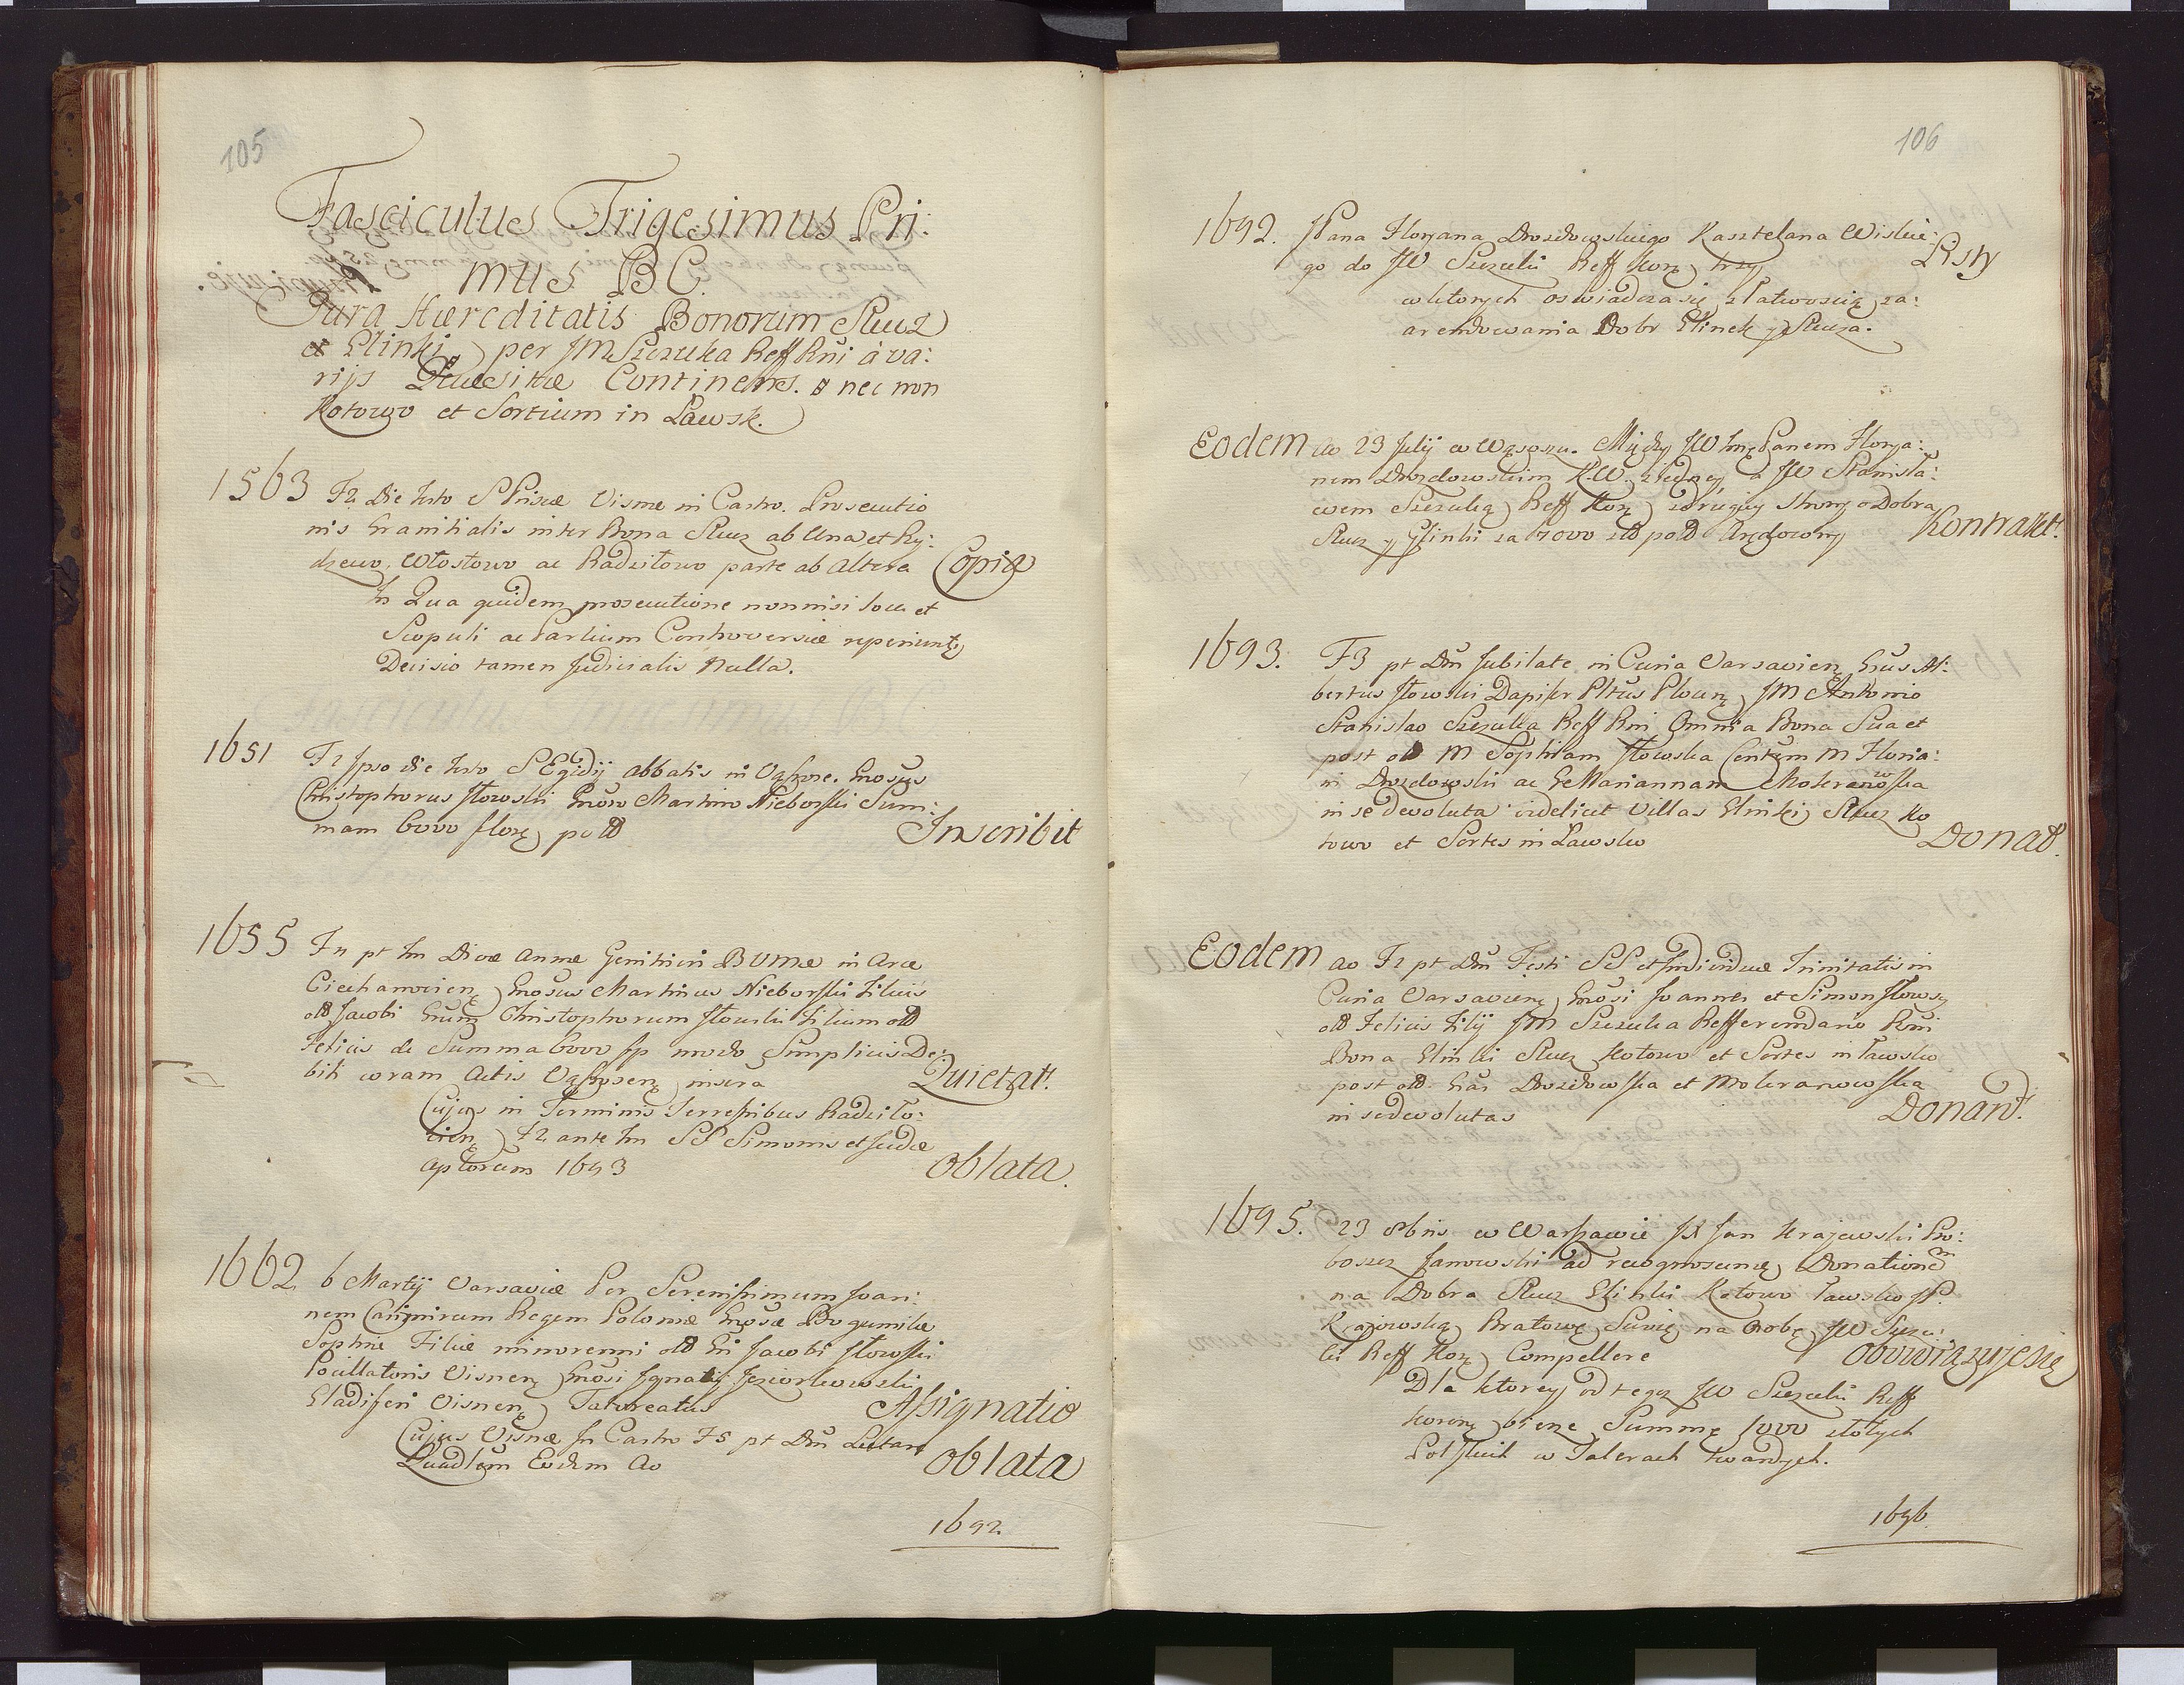 105
Fasciculus Trigesimus Pri:
mus BC.
Jura Hæreditatis Bonorum Słucz
et Glinki per JM Szczuka Reff Rni à va:
rijs Quæsitæ Continens. nec non
Kotowo et Sortium in Ławsk.
1563 F2 Die festo S Priscæ Visnæ in Castro. Prosecutio
nis Granitialis inter Bona Słucz ab Una et Ry:
dzewo, Włostowo ac Radziłowo parte ab Altera Copia
In Qua quidem prosecutione nonnisi loca et
Scopuli ac Partium Controversiæ reperiuntę
Decisio tamen Judicialis Nulla.
1651 F2 Ipso die festo S Egidij Abbatis in Vąsosze. Gnosus
Christophorus Iłowski Gnoso Martino Nieborski Sum:
mam 6000 florę poƚƚ Inscribit
1655 Fr pt fm Divæ Annæ Genitricis BVMæ in Arce
Ciechanovienę Gnosus Martinus Nieborski Filius
oƚƚ Jacobi Gnum Christophorum Iłowski Filium oƚƚ
Felicis de Summa 6000 fp modo Simplicis De:
biti coram Actis Vąsosenę inscra Quietat.
Cujus in Terminis Terrestribus Radziło:
vienę F2 ante fm SS Simonis et Judæ
Aptorum 1693 oblata.
1662 6 Martij Varsaviæ Per Serenissimum Joan:
nem Casimirum Regem Poloniæ Gnosæ Bogumilæ
Sophiæ Filiæ minorenni oƚƚ Gni Jacobi Iłowski
Pocillatoris Visnenę Gnosi Ignatij Jeziorkowski
Gladiferi Visnenę Tutoreatus Assignatio
Cujus Visnæ in Castro F5 pt Dm Lætare
Quadlem Eodem Ao oblata
1692.
106
1692. JPana Floryana Drozdowskiego Kasztelana Wiskie:
go do JW Szczuki Reff Korę trzy Listy
w ktorych oswiadcza się z łatwoscią za:
arendowania Dobr Glinek y Słucza.
Eodem ao 23 Julij w Wąsoszu. Między JW Jmę Panem Florya:
nem Drozdowskim K.W. z iedney a JW Stanisła:
wem Szczuką Reff Korę z drugiey strony o Dobra
Słucz y Glinki za 7000 złƚ polƚ Arędowny Kontrakt.
1693. F3 pt Dm Jubilate in Curia Varsavienę Gnus Al:
bertus Iłowski Dapifer Pltus Płocenę JM Antonio
Stanislao Szczuka Reff Rni Omnia Bona Sua et
post oƚƚ M Sophiam Iłowska Contem M Floria:
ni Drozdowski ac Ge Mariannam Mokranowska
in se devoluta videlicet Villas Glinki Słucz Ko
towo et Sortes in Ławsko Donat.
Eodem ao F2 pt Dm Festi SS et Individuæ Trinitatis in
Curia Varsavienę Gnosi Joannes et Simon Iłowscy
oƚƚ Felicis Filij JM Szczuka Refferendario Rni
Bona Glinki Słucz Kotowo et Sortes in Ławsko
post oƚƚ Gnas Drozdowska et Mokranowska
in se devolutas Donant.
1695. 23 8bris w Warszawie JX Jan Krajewski Pro:
boszcz Janowski ad recognoscendę Donationem
na Dobra Słucz Glinki Kotowo Ławsko JP.
Kraiewską Bratowę Swoię na Osobę JW Szczu:
ki Reff Korę Compellere Obowiązuje się
Dla ktorey od tegoz JW Szczuki Reff
koronę bierze Summę 1000 złotych
Polskich w Talerach twardych.
1696.